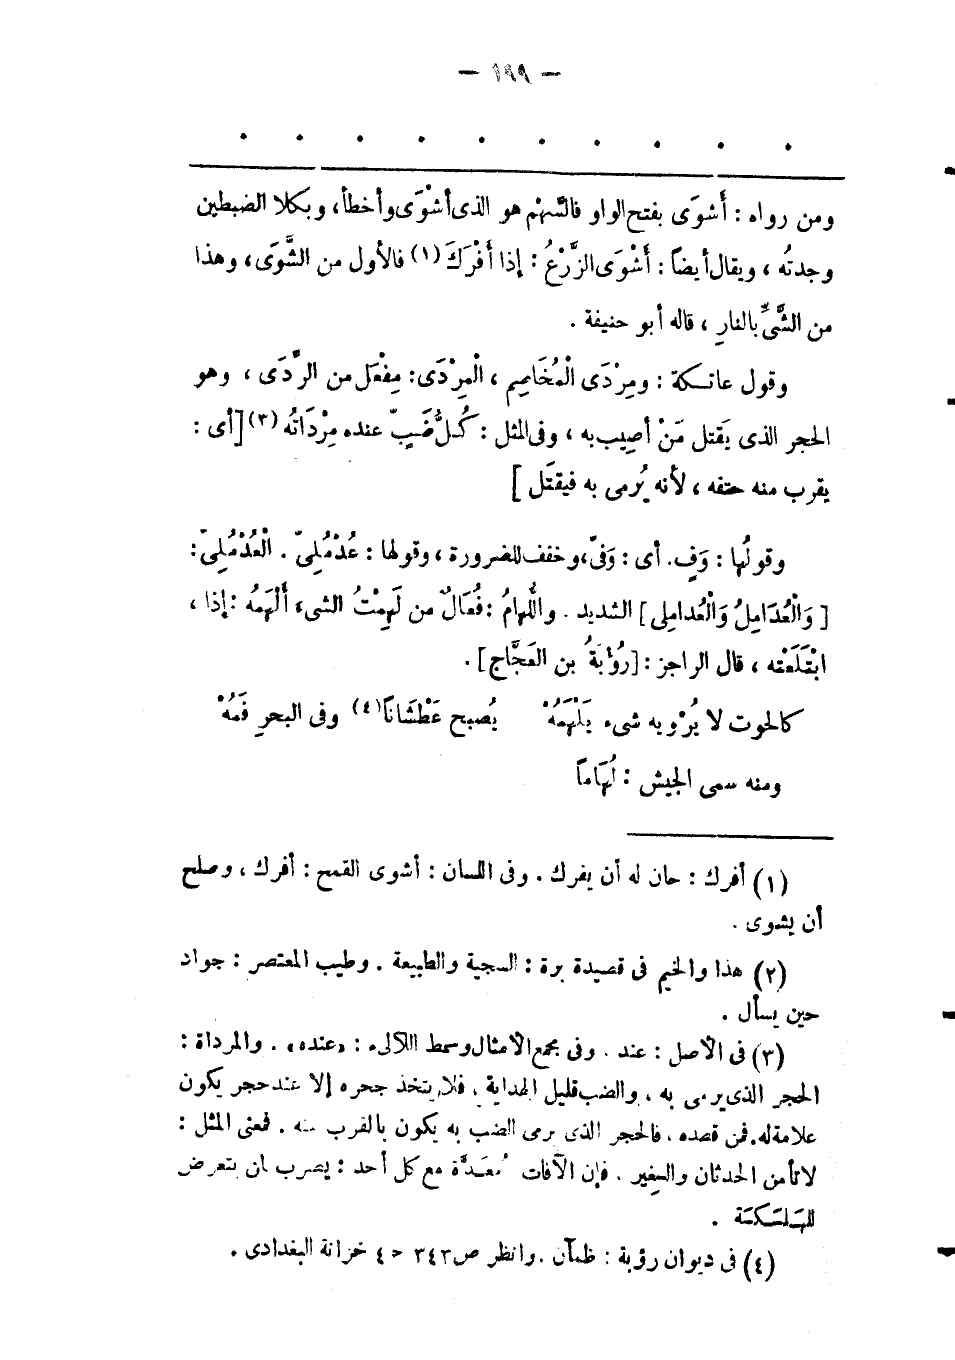 — ١٩٩ —
. . . . . . . . . .
ومن رواه : أَشوَى بفتح الواو فالسَّهْم هو الذى أشْوَى وأخطأ ، وبكلا الضبطين
وجدتُه ، ويقال أيضاً : أَشْوَى الزَّرْعُ : إذا أَفْرَكَ (١) فالأول من الشَّوَى ، وهذا
من الشَّىِّ بالنارِ ، قاله أبو حنيفة .
وقول عاتكة : ومِرْدَى الْمُخَاصِمِ ، الْمِرْدَى : مِفْعَل من الرَّدَى ، وهو
الحجر الذى يَقتل مَنْ أصِيب به ، وفى المثل : كُلُّ ضَبٍّ عنده مِرْدَاتُه (٣) [ أى :
يقرب منه حتفه ، لأنه يُرمى به فيقتَل ]
وقولُها : وَفٍ . أى : وَفىّ ، وخفف للضرورة ، وقولها : عُدْمُلِىّ . الْعُدْمُلِىّ :
[ وَالْعُدَامِلُ وَالْعُدامِلى ] الشديد . واللُّهامُ : فُعَالٌ من لَهِمْتُ الشىء أَلْهَمُه : إذا ،
ابْتَلَعْته ، قال الراجز : [ رُؤبَةُ بن العَجَّاج ] .
كالحوت لا يُرْوِيه شىء يَلْهَمُهْ يُصبح عَطْشَاناً (٤) وفى البحرِ فَمُهْ
ومنه سمى الجيش : لُهَاماً
(١) أفرك : حان له أن يفرك . وفى اللسان : أشوى القمح : أفرك ، وصلح
أن يشوى .
(٢) هذا والخيم فى قصيدة برة : السجية والطبيعة . وطيب المعتصر : جواد
حين يسأل .
(٣) فى الأصل : عند . وفى مجمع الأمثال وسمط اللآلىء : «عنده» . والمرداة :
الحجر الذى يرمى به ، والضب قليل الهداية ، فلا يتخذ جحره إلا عند حجر يكون
علامة له . فمن قصده ، فالحجر الذى يرمى الضب به يكون بالقرب منه . فمعنى المثل :
لا تأمن الحدثان والغير . فإن الآفات مُعَدَّة مع كل أحد : يضرب لمن يتعرض
للهلكة .
(٤) فى ديوان رؤبة : ظمآن . وانظر ص ٣٤٣ حـ ٤ خزانة البغدادى .